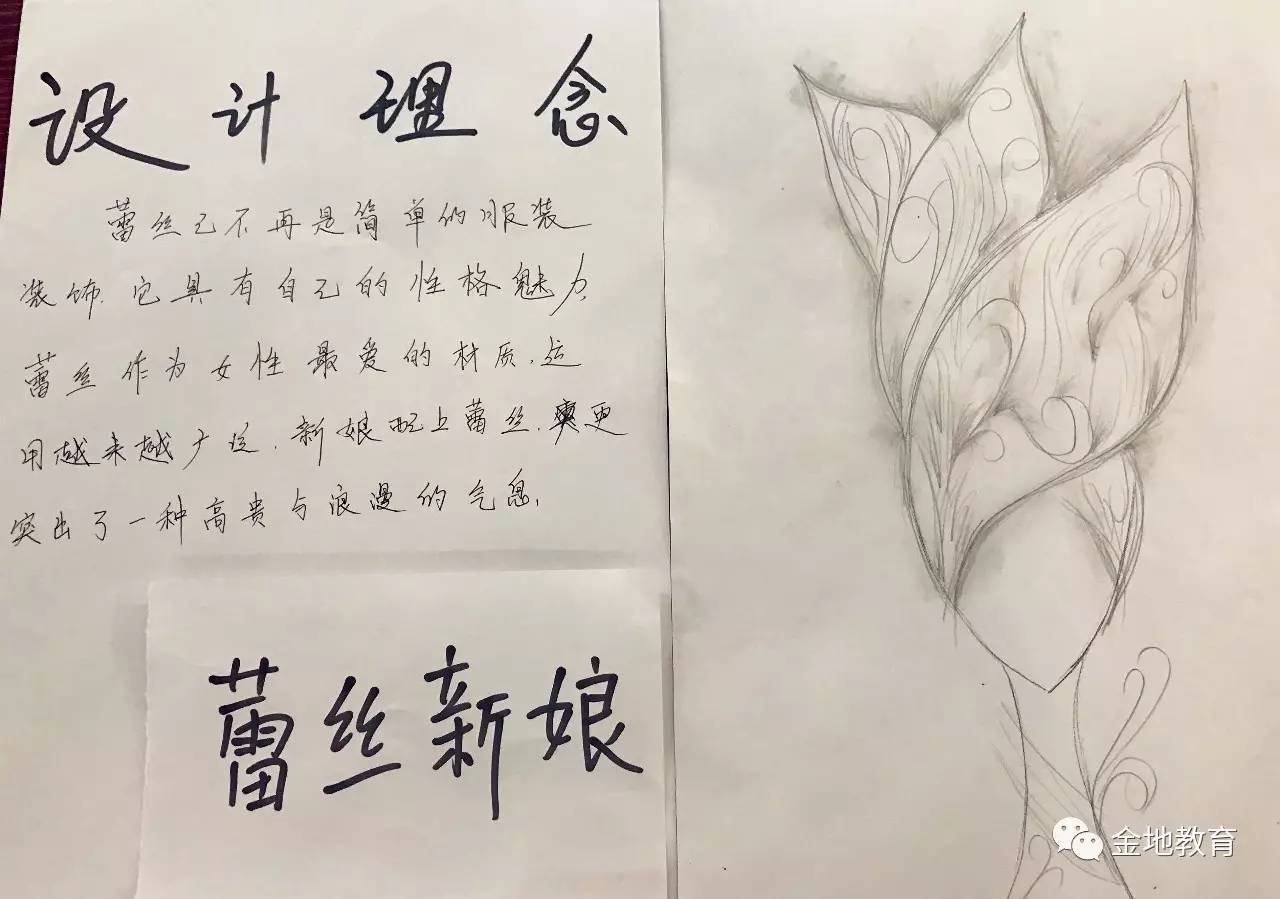 设计理念
蕾丝已不再是简单的服装
装饰.它具有自己的性格魅力,
蕾丝作为女性最爱的材质,运
用越来越广泛.新娘配上蕾丝.更
突出了一种高贵与浪漫的气息,
蕾丝新娘
金地教育